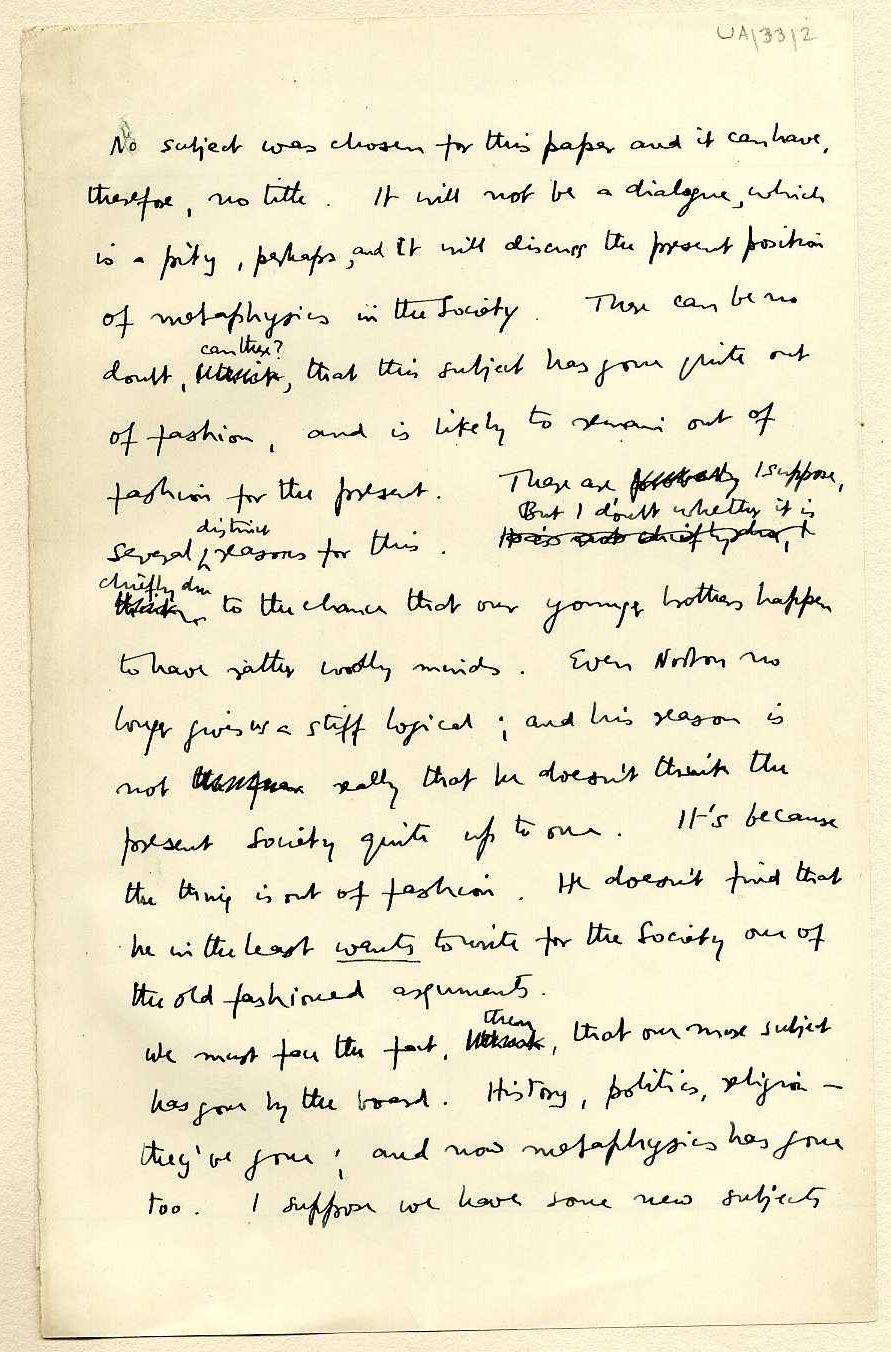 UA/33/2
No subject was chosen for this paper and it can have,
therefore, no title. It will not be a dialogue, which
is a pity, perhaps, and It will discuss the present position
of metaphysics in the Society. There can be no
can there?
doubt, I think, that this subject has gone quite out
of fashion, and is likely to remain out of
fashion for the present. There are probably I suppose,
But I doubt whether it is
distinct
several reasons for this. It is not chiefly due, I
chiefly due
think, to the chance that our younger brothers happen
to have rather woolly minds. Even Norton no
longer gives us a stiff logical; and his reason is
not really that he doesn't think the
present Society quite up to one. It's because
the thing is out of fashion. He doesn't find that
he in the least wants to write for the Society one of
the old fashioned arguments.
then
We must face the fact, I think, that one more subject
has gone by the board. History, politics, religion —
they've gone; and now metaphysics has gone
too. I suppose we have some new subjects